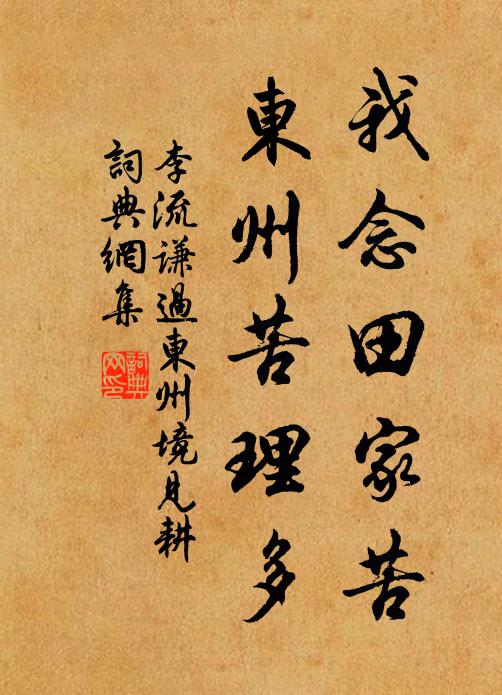 我念田家苦
東州苦理多
李流謙過東州境見耕
詞典網集
詞典
网印